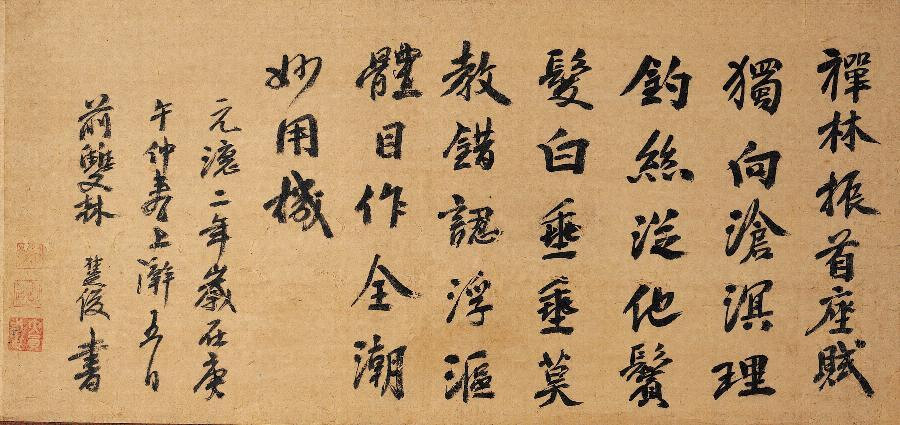 禪林振首座賦
獨向滄溟理
釣絲從他鬢
髮白垂垂莫
教錯認浮漚
體目作全潮
妙用機
元德二年歲在庚
午仲春上澣五日
前雙林 楚俊書